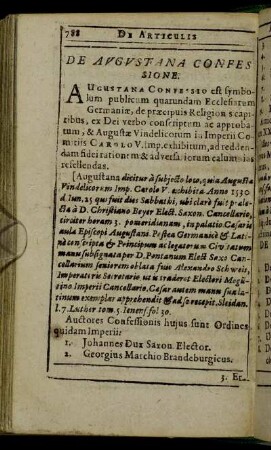 788 DE ARTICULIS
DE AVGVSTANA CONFES
SIONE.
AUGUSTANA CONFESSIO est symbo
lum publicum quarundam Ecclesiarum
Germaniæ, de præcipuis Religionis capi
tibus, ex Dei verbo conscriptum ac approba
tum, & Augustæ Vindelicorum in Imperii Co
mitiis CAROLO V. Imp. exhibitum, ad redden
dam fidei rationem & adversariorum calumnias
refellendas.
[Augustana dicitur à subjecto loco, quia Augustæ
Vindelicorum Imp. Carolo V. exhibita Anno 1530
d. Iun. 25 quæ fuit dies Sabbathi, ubi clarè fuit p. lecta
à D. Christiano Beyer Elect. Saxon. Cancellario,
circiter horam 3. pomeridianam, in palatio Cæsaris
aula Episcopi Augustani. Postea Germanicè & Lati
nè conscripta & Principum ac legatorum Civitatum
manu subsignata per D. Pontanum Elect Saxo Can
cellarium seniorem oblata fuit Alexandro Schweis,
Imperatoris Secretario ut is traderet Electori Mogun
tino Imperii Cancellario. Cæsar autem manu suâ la
tinum exemplar apprehendit & ad se recepit. Sleidan.
l. 7. Luther tom. 5. Ienens. fol 30.
Auctores Confessionis hujus sunt Ordines
quidam Imperii:
1. Johannes Dux Saxon Elector.
2. Georgius Marchio Brandeburgicus.
3. Er-